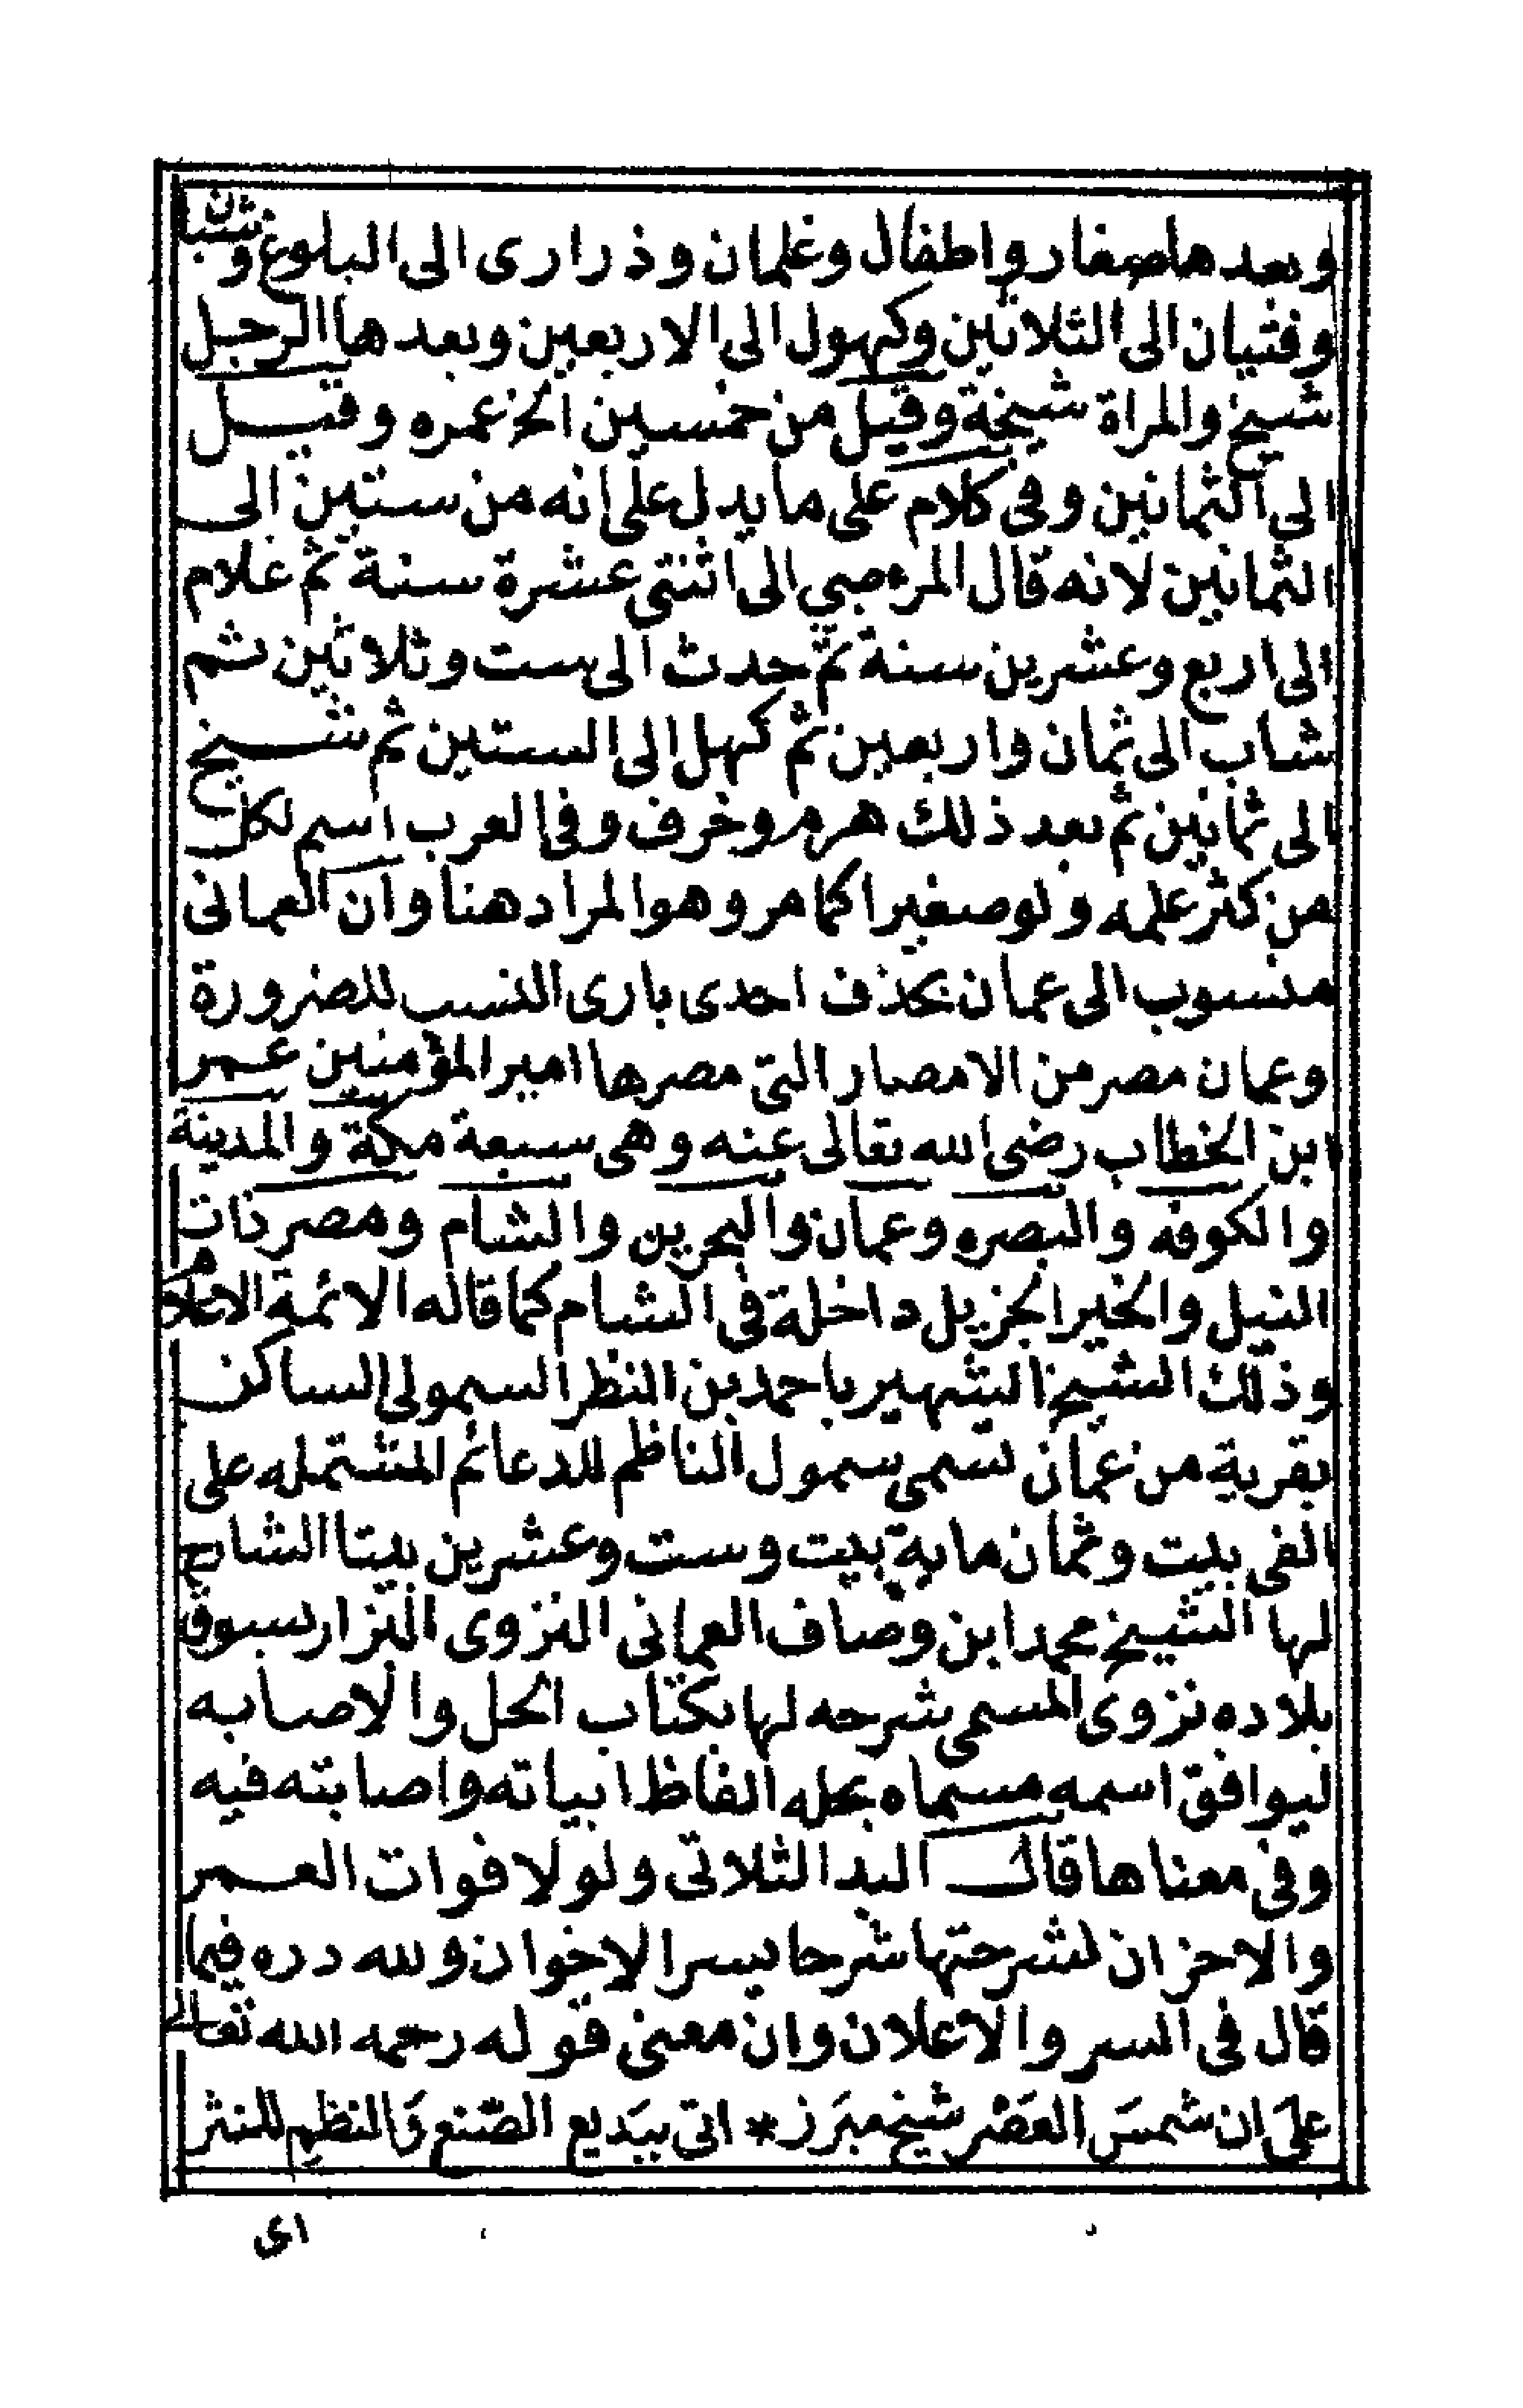 وبعدها صغار واطفال وغلمان وذرارى الى البلوغ وشبان
وفتيان الى الثلاثين وكهول الى الاربعين وبعدها الرجل
شيخ والمراة شيخة وقيل من خمسين الخ عمره وقيل
الى الثمانين وفى كلام على ما يدل على انه من ستين الى
الثمانين لانه قال المرء صبي الى اثنتى عشرة سنة ثم غلام
الى اربع وعشرين سنة ثم حدث الى ست وثلاثين ثم
شاب الى ثمان واربعين ثم كهل الى الستين ثم شيخ
الى ثمانين ثم بعد ذلك هرم وخرف وفى العرب اسم لكل
من كثر علمه ولو صغيرا كما مر وهو المراد هنا وان العمانى
منسوب الى عمان بحذف احدى يارى النسب للضرورة
وعمان مصر من الامصار التى مصرها امير المؤمنين عمر
ابن الخطاب رضى الله تعالى عنه وهى سبعة مكة والمدينة
والكوفه والبصره وعمان والبحرين والشام ومصر ذات
النيل والخير الجزيل داخلة فى الشام كما قاله الائمة الاعلام
وذلك الشيخ الشهير باحمد بن النظر السمولى الساكن
بقرية من عمان تسمى سمول الناظم للدعائم المشتمله على
الفى بيت وثمان ماية بيت وست وعشرين بيتا الشارح
لها الشيخ محمد ابن وصاف العمانى النزوى البزار بسوق
بلاده نزوى المسمى شرحه لها بكتاب الحل والاصابه
ليوافق اسمه مسماه بحله الفاظ ابياته واصابته فيه
وفى معناها قال البدر الثلاتى ولولا فوات العمر
والاحزان لشرحتها شرحا يسر الاخوان ولله دره فيما
قال فى السر والاعلان وان معنى قوله رحمه الله تعالى
عَلى ان شمسَ العَصْر شيخ مبَرز * اتى ببَديع الصّنع وَالنظم للنثر
اى